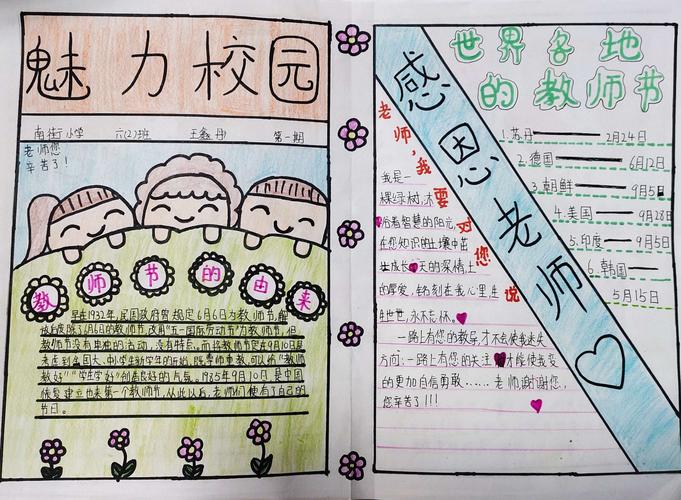 魅力校园
南街小学 六(2)班 王鑫丹 第一期
老师您
辛苦了!
教师节的由来
早在1932年,民国政府曾规定6月6日为教师节,解
放后废除了6月6日的教师节,改用"五一国际劳动节"为教师节,但
教师节没有单独的活动,没有特点。而将教师节定在9月10日是
考虑到全国大、中小学生新学年的开始,
教好""学生学好"创造良好的气氛。1985年9月10日,是中国
恢复建立
第一个教师节,从此以后,老师们便有了自己的
节日。
感恩老师
世界各地
的教师节
1.苏丹 2月24日
2.德国 6月12日
3.朝鲜 9月5日
4.美国 9月28日
5.印度 9月5日
6.韩国
5月15日
老师,我要对您说
我是一
棵绿树,沐
浴着智慧的阳光,
在您知识的土壤中茁
壮成长。天的深情,
的厚爱,铭刻在我心里,生
生世世,永不忘怀。
一路上有您的教导,才不会使我迷失
方向;一路上有您的关注,才能使我变
的更加自信勇敢……老师谢谢您,
您辛苦了!!!